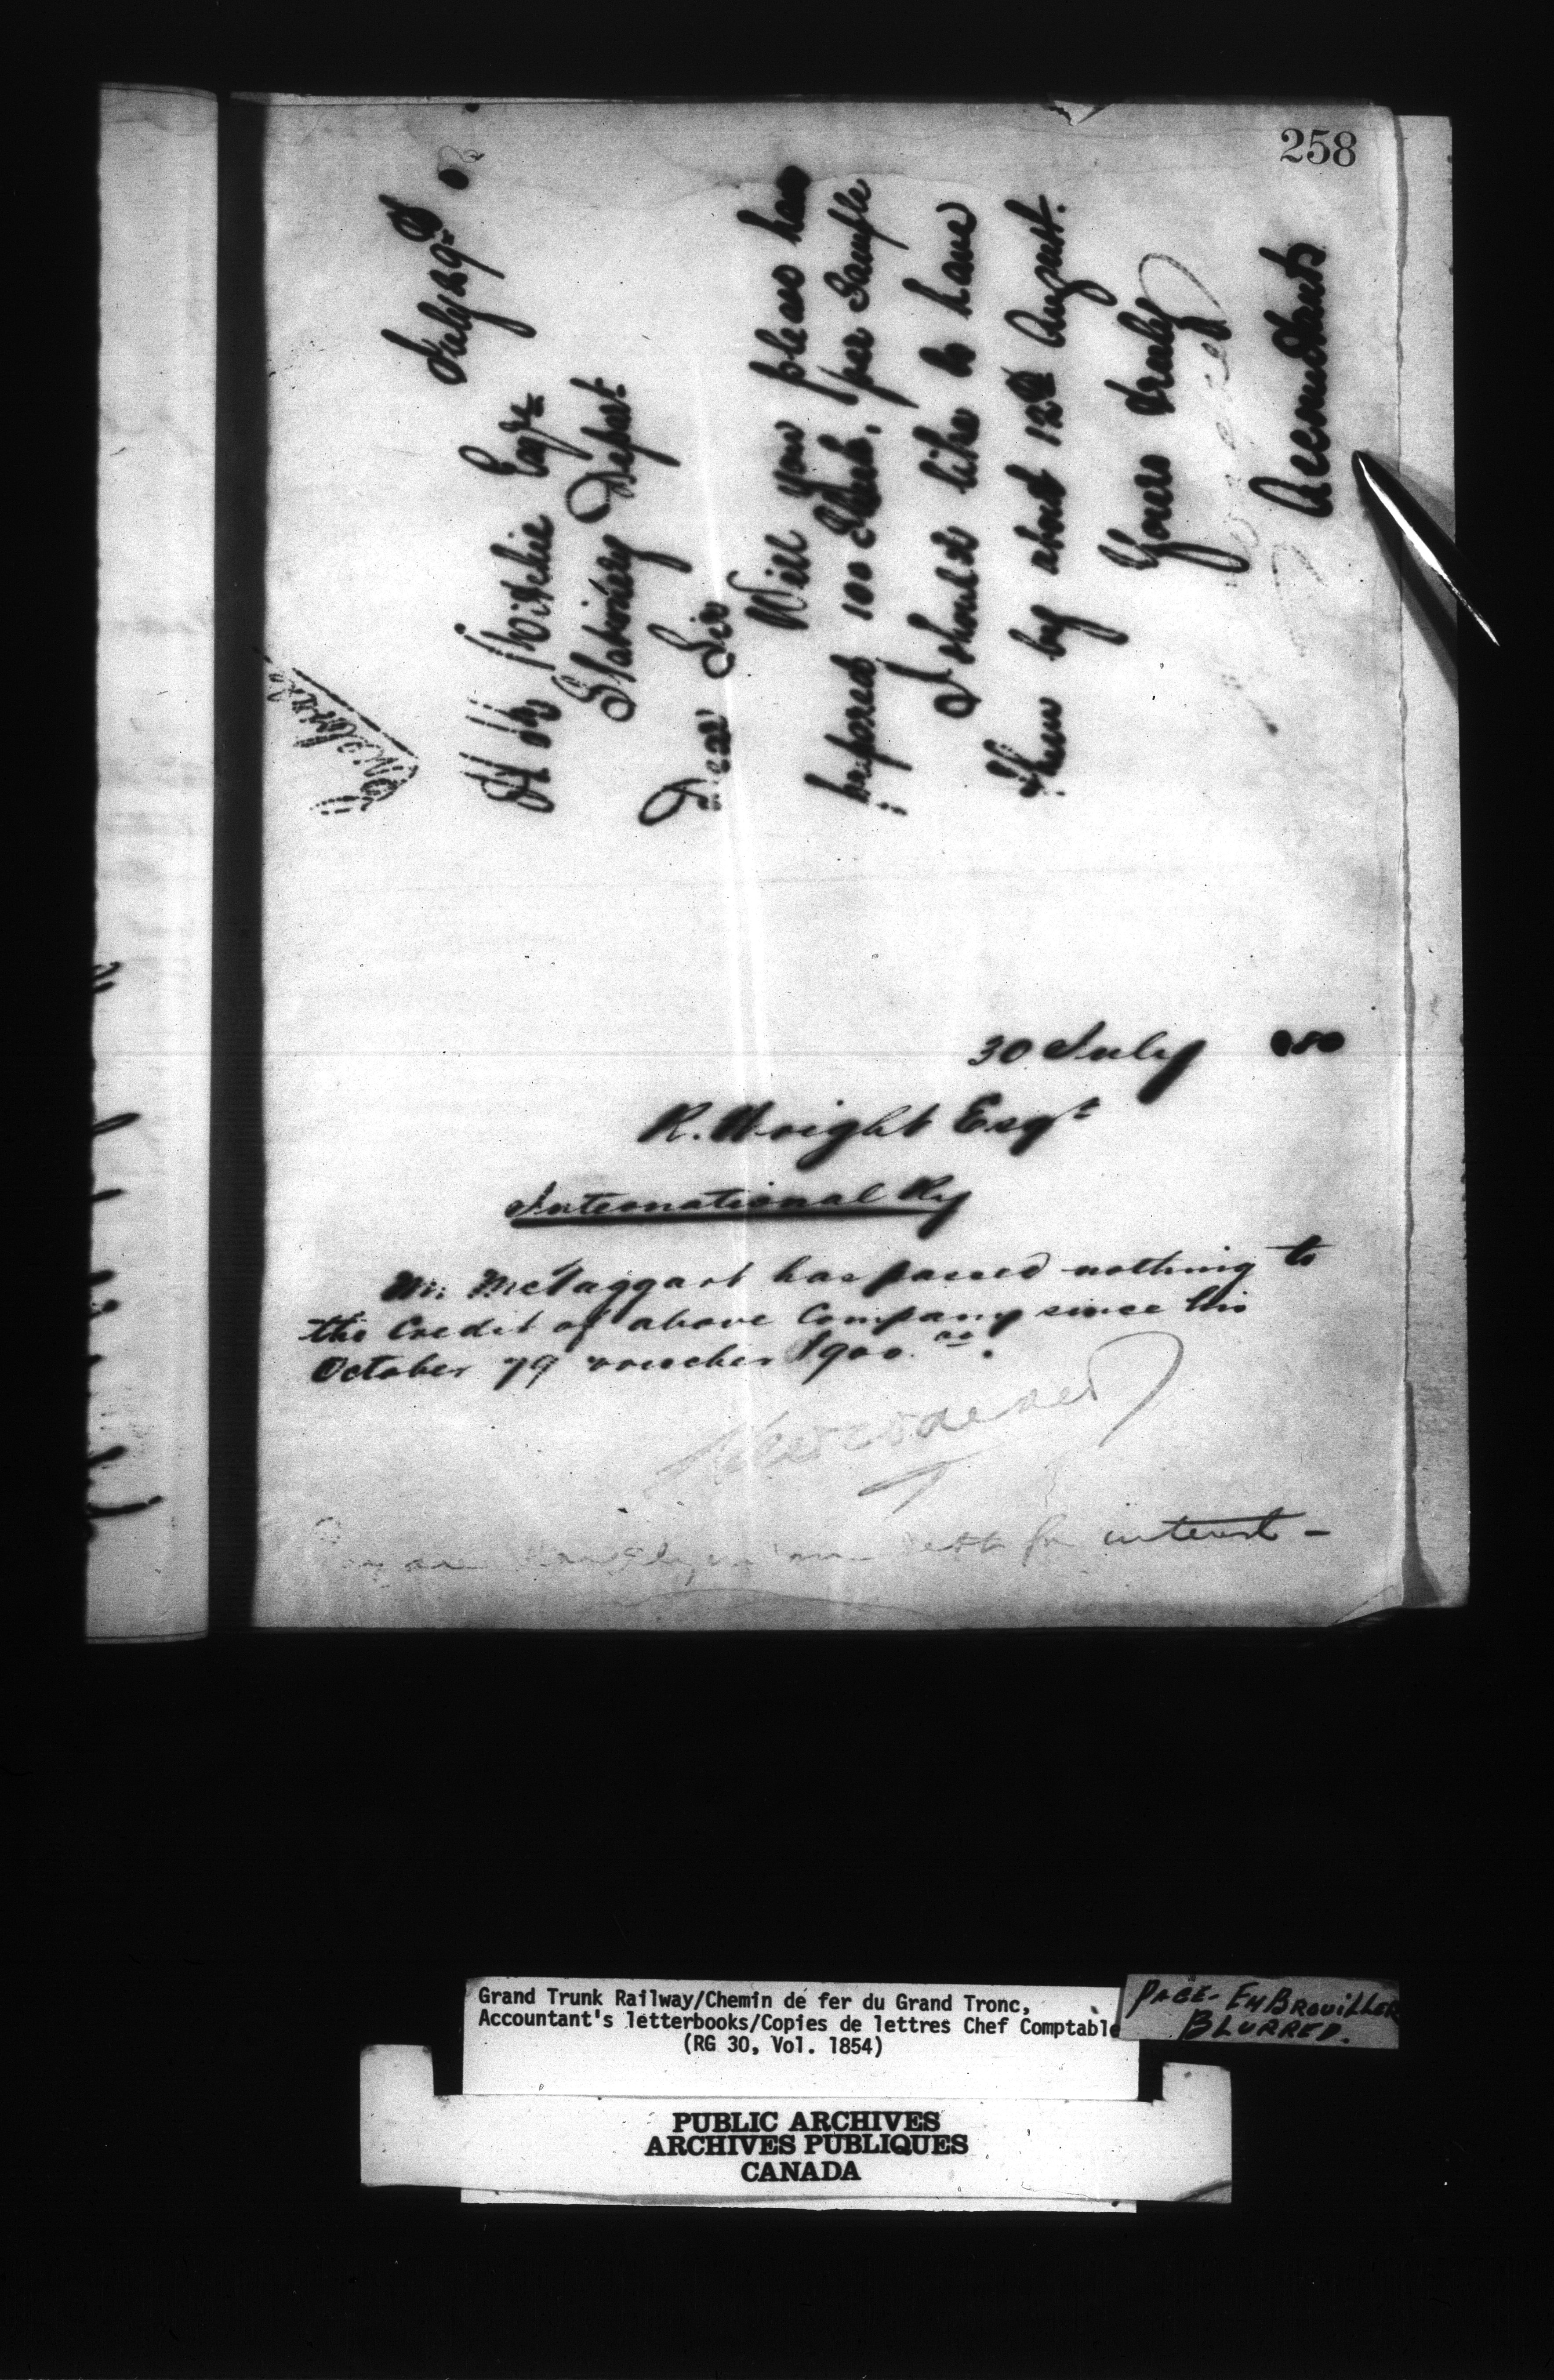 258
July 29th
Ritchie Esqr
Stationery Depart.
Dear Sir
Will you please have
prepared 100 per Sample
I should like to have
them by about 12th August.
Yours truly
Accountants
30 July 80
R. Wright Esqr
International Ry
Mr McTaggart has passed nothing to
the Credit of above Company since his
October 79 voucher $900.00.
for interest —
Grand Trunk Railway/Chemin de fer du Grand Tronc,
Accountant's letterbooks/Copies de lettres Chef Comptable
(RG 30, Vol. 1854)
PAGE- EMBROUILLER
BLURRED.
PUBLIC ARCHIVES
ARCHIVES PUBLIQUES
CANADA